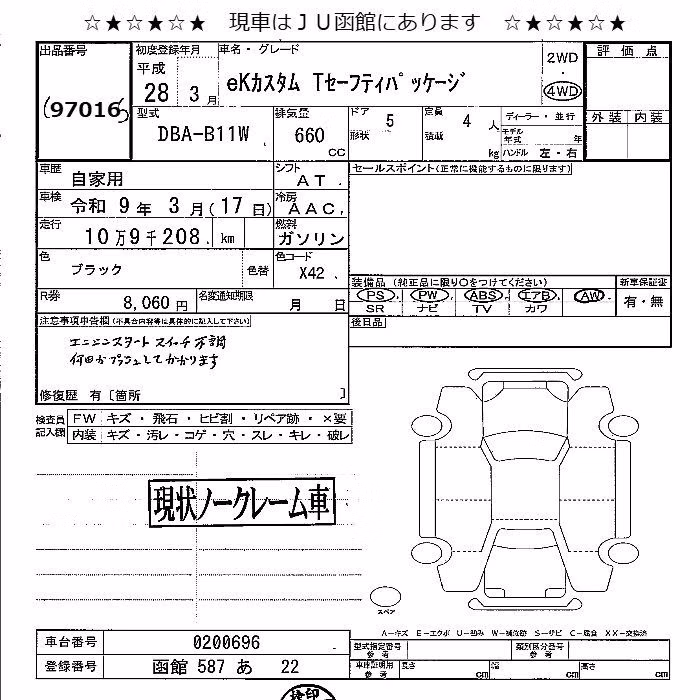 ☆★☆★☆★ 現車はＪＵ函館にあります ☆★☆★☆★
出品番号 初度登録年月 車名・グレード 2WD ・ 4WD 評価点
97016 平成 28 3 月 eKカスタム Tセーフティパッケージ
型式 DBA-B11W 排気量 660 CC ドア 5 形状 定員 4 人 積載 kg ディーラー・並行 モデル年式 年 ハンドル 左・右 外装 内装
車歴 自家用 シフト AT セールスポイント(正常に機能するものに限ります)
車検 令和 9 年 3 月(17 日) 冷房 AAC
走行 10万9千208 km 燃料 ガソリン
色 ブラック 色替 色コード X42 装備品 (純正品に限り○をつけてください) 新車保証書
PS PW ABS エアB AW 有・無
SR ナビ TV カワ
R券 8,060円 名変通知期限 月 日
後日品
注意事項申告欄(不具合内容等は具体的に記入して下さい)
エンジンスタートスイッチ不調
何回かプッシュしてかかります
修復歴 有 [箇所 ]
検査員記入欄 FW キズ・飛石・ヒビ割・リペア跡・×要
内装 キズ・汚レ・コゲ・穴・スレ・キレ・破レ
現状ノークレーム車
スペア
A-キズ E-エクボ U-凹み W-補修跡 S-サビ C-腐食 XX-交換済
車台番号 0200696 型式指定番号 参考 類別区分番号 参考
登録番号 函館 587 あ 22 車庫証明用 参考 長さ cm 幅 cm 高さ cm
検印